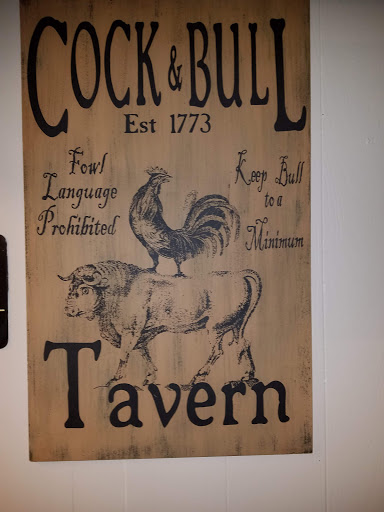 COCK & BULL
Est 1773
Fowl
Language
Prohibited
Keep Bull
to a
Minimum
Tavern